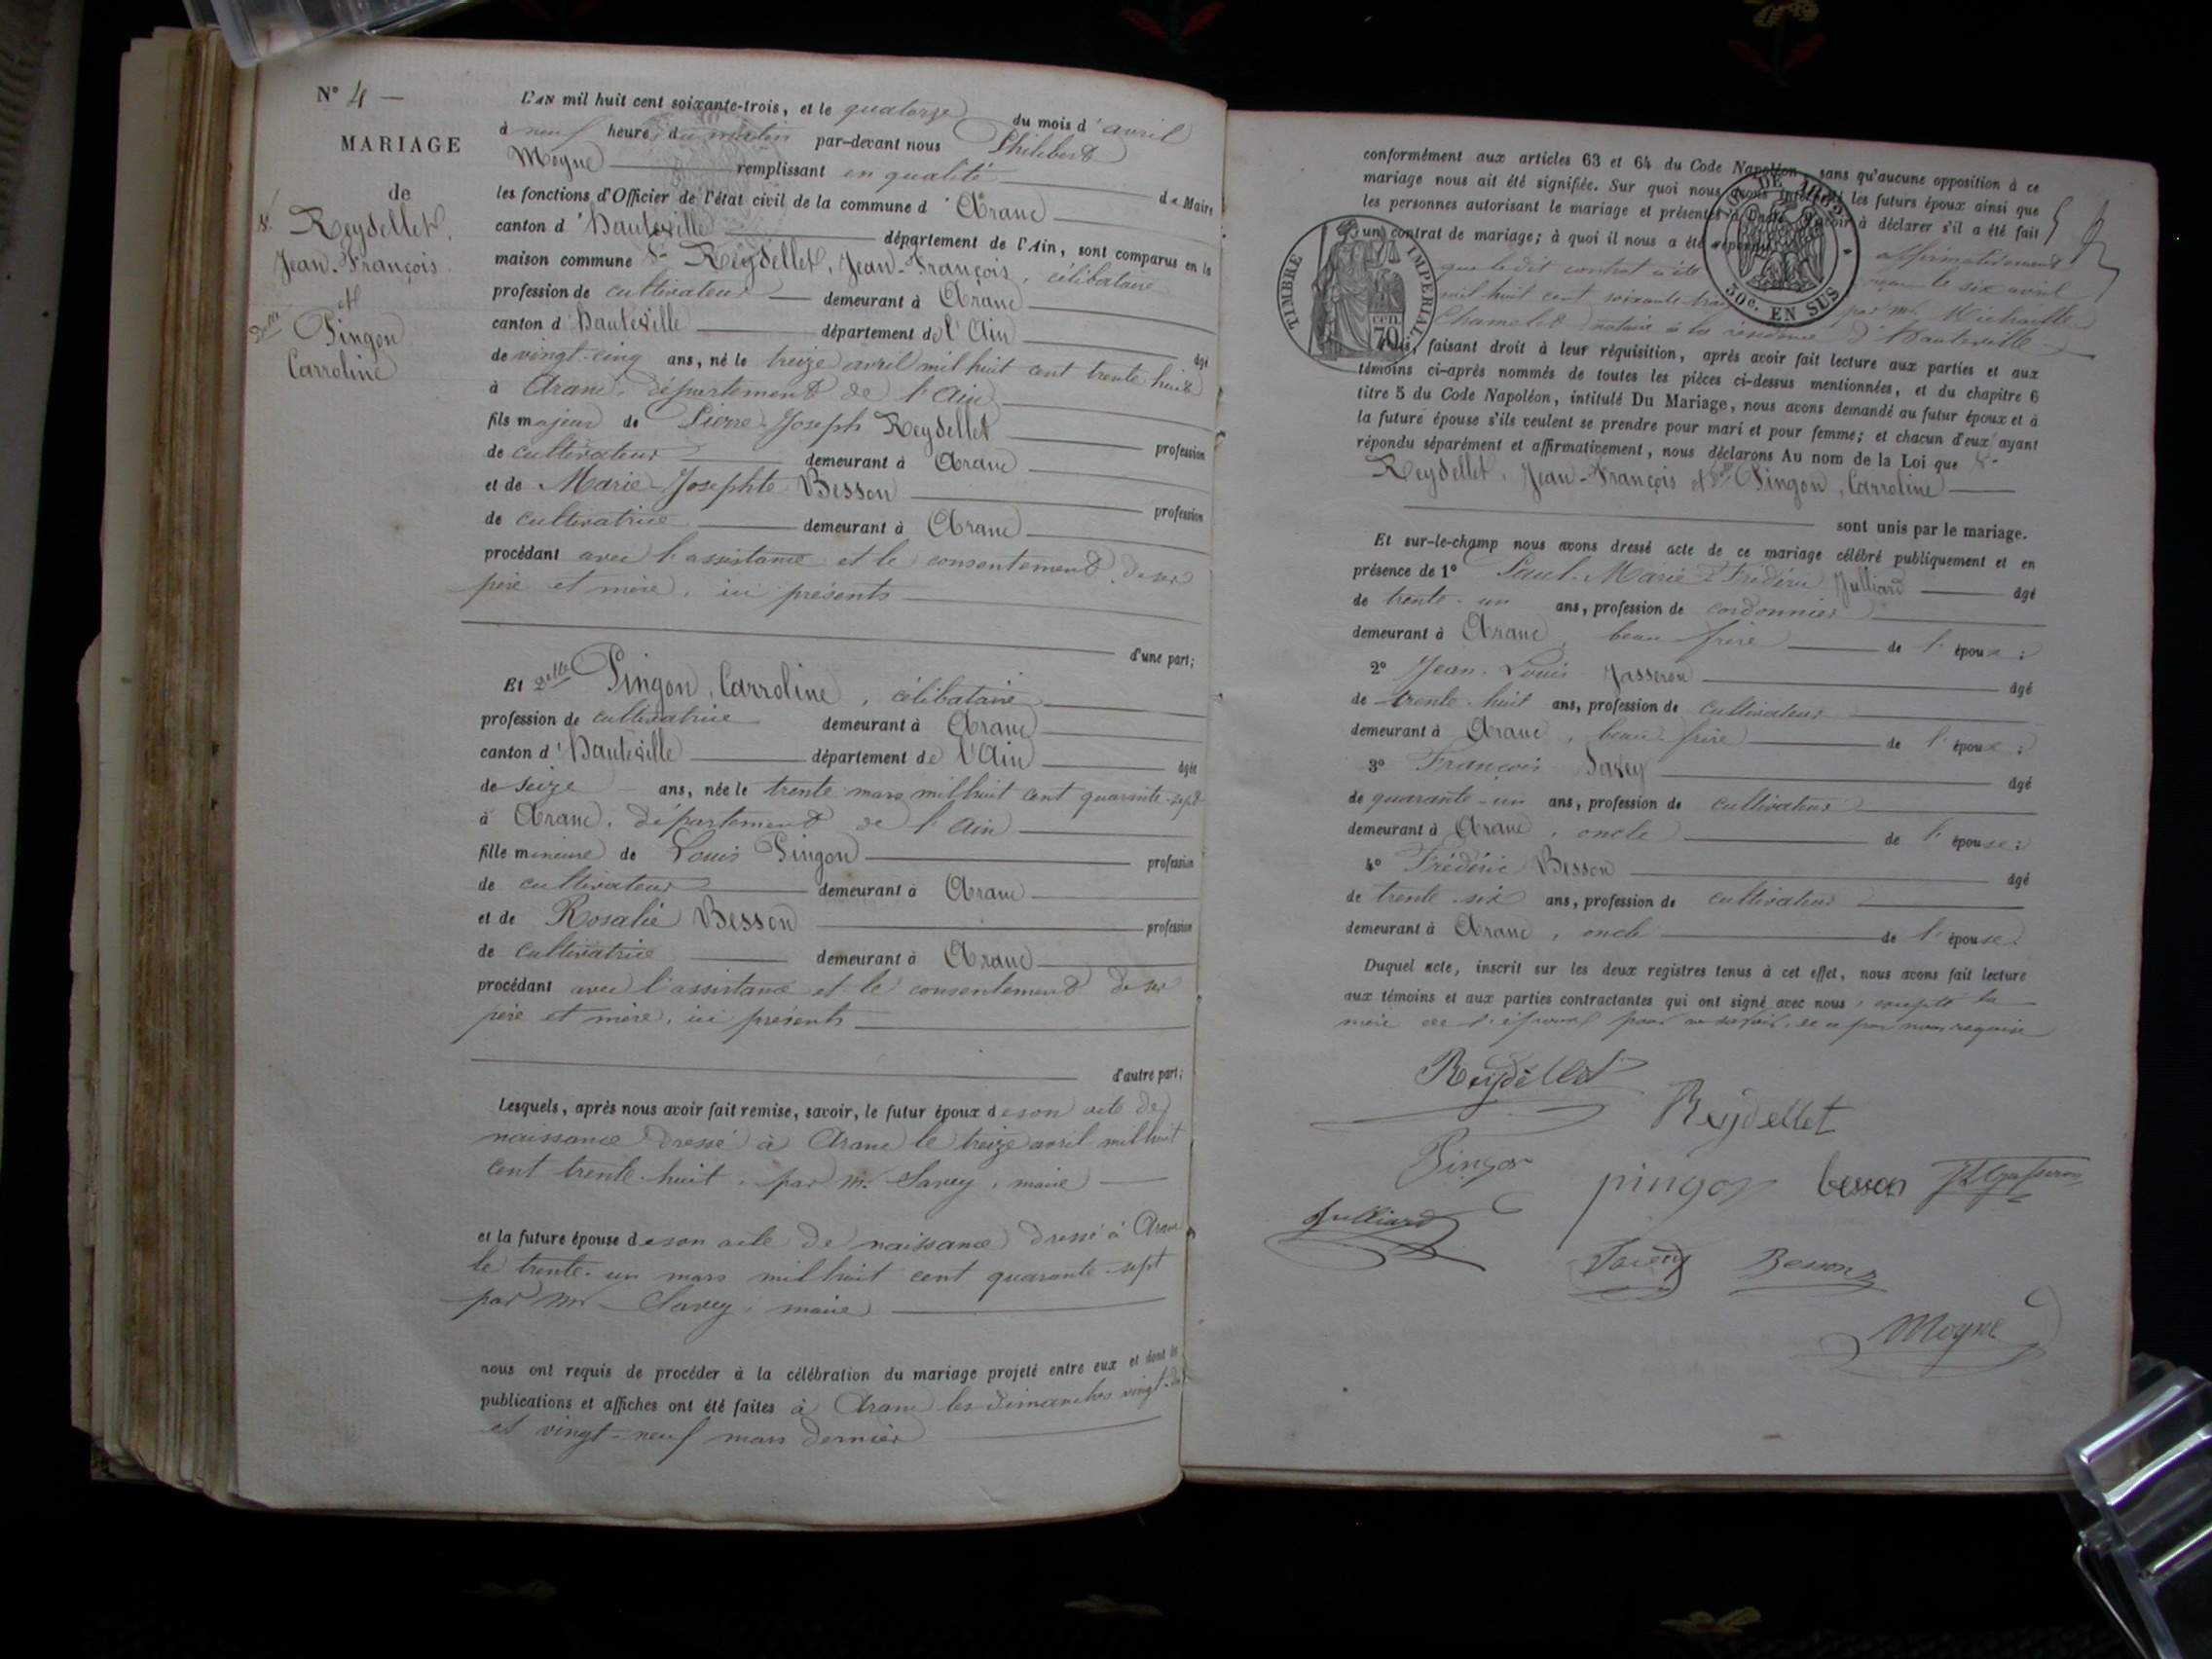 N° 4 —
MARIAGE
de
Sr. Reydellet,
Jean-François
et
Delle Pingon
Carroline
L'AN mil huit cent soixante-trois, et le quatorze du mois d'avril
à neuf heures du matin par-devant nous Philibert
Moyne remplissant en qualité de Maire
les fonctions d'Officier de l'état civil de la commune d'Aranc
canton d'Hauteville département de l'Ain, sont comparus en la
maison commune Sr Reydellet, Jean-François, célibataire
profession de cultivateur demeurant à Aranc
canton d'Hauteville département de l'Ain âgé
de vingt-cinq ans, né le treize avril mil huit cent trente huit
à Aranc, département de l'Ain
fils majeur de Pierre-Joseph Reydellet profession
de cultivateur demeurant à Aranc
et de Marie-Josephte Besson profession
de cultivatrice demeurant à Aranc
procédant avec l'assistance et le consentement de ses
père et mère, ici présents
d'une part;
Et Delle Pingon, Carroline, célibataire
profession de cultivatrice demeurant à Aranc
canton d'Hauteville département de l'Ain âgée
de seize ans, née le trente mars mil huit cent quarante-sept
à Aranc, département de l'Ain
fille mineure de Louis Pingon profession
de cultivateur demeurant à Aranc
et de Rosalie Besson profession
de cultivatrice demeurant à Aranc
procédant avec l'assistance et le consentement de ses
père et mère, ici présents
d'autre part;
Lesquels, après nous avoir fait remise, savoir, le futur époux de son acte de
naissance dressé à Aranc le treize avril mil huit
cent trente-huit, par Mr. Savey, maire
et la future épouse de son acte de naissance dressé à Aranc
le trente-un mars mil huit cent quarante-sept
par Mr. Savey, maire
nous ont requis de procéder à la célébration du mariage projeté entre eux et dont les
publications et affiches ont été faites à Aranc les dimanches vingt-deux
et vingt-neuf mars dernier
conformément aux articles 63 et 64 du Code Napoléon, sans qu'aucune opposition à ce
mariage nous ait été signifiée. Sur quoi nous avons interpellé les futurs époux ainsi que
les personnes autorisant le mariage et présentes à déclarer s'il a été fait
un contrat de mariage; à quoi il nous a été répondu affirmativement
que le dit contrat a été reçu le six avril
mil huit cent soixante-trois par Mr. Michaille
Chamelet notaire à la résidence d'Hauteville.
TIMBRE IMPERIAL
70 cen.
50c. EN SUS
Puis, faisant droit à leur réquisition, après avoir fait lecture aux parties et aux
témoins ci-après nommés de toutes les pièces ci-dessus mentionnées, et du chapitre 6
titre 5 du Code Napoléon, intitulé Du Mariage, nous avons demandé au futur époux et à
la future épouse s'ils veulent se prendre pour mari et pour femme; et chacun d'eux ayant
répondu séparément et affirmativement, nous déclarons Au nom de la Loi que Sr
Reydellet, Jean-François et Delle Pingon, Carroline
sont unis par le mariage.
Et sur-le-champ nous avons dressé acte de ce mariage célébré publiquement et en
présence de 1° Paul-Marie-Frédéric Julliard âgé
de trente-un ans, profession de cordonnier
demeurant à Aranc, beau frère de l'époux;
2° Jean-Louis Jasseron âgé
de trente-huit ans, profession de cultivateur
demeurant à Aranc, beau-frère de l'époux;
3° François Savey âgé
de quarante-un ans, profession de cultivateur
demeurant à Aranc, oncle de l'épouse;
4° Frédéric Besson âgé
de trente-six ans, profession de cultivateur
demeurant à Aranc, oncle de l'épouse.
Duquel acte, inscrit sur les deux registres tenus à cet effet, nous avons fait lecture
aux témoins et aux parties contractantes qui ont signé avec nous, excepté la
mère de l'époux pour ne savoir, de ce par nous requise
Reydellet
Reydellet
Pingon
pingon
besson
Julliard
Savey
Besson
Moyne